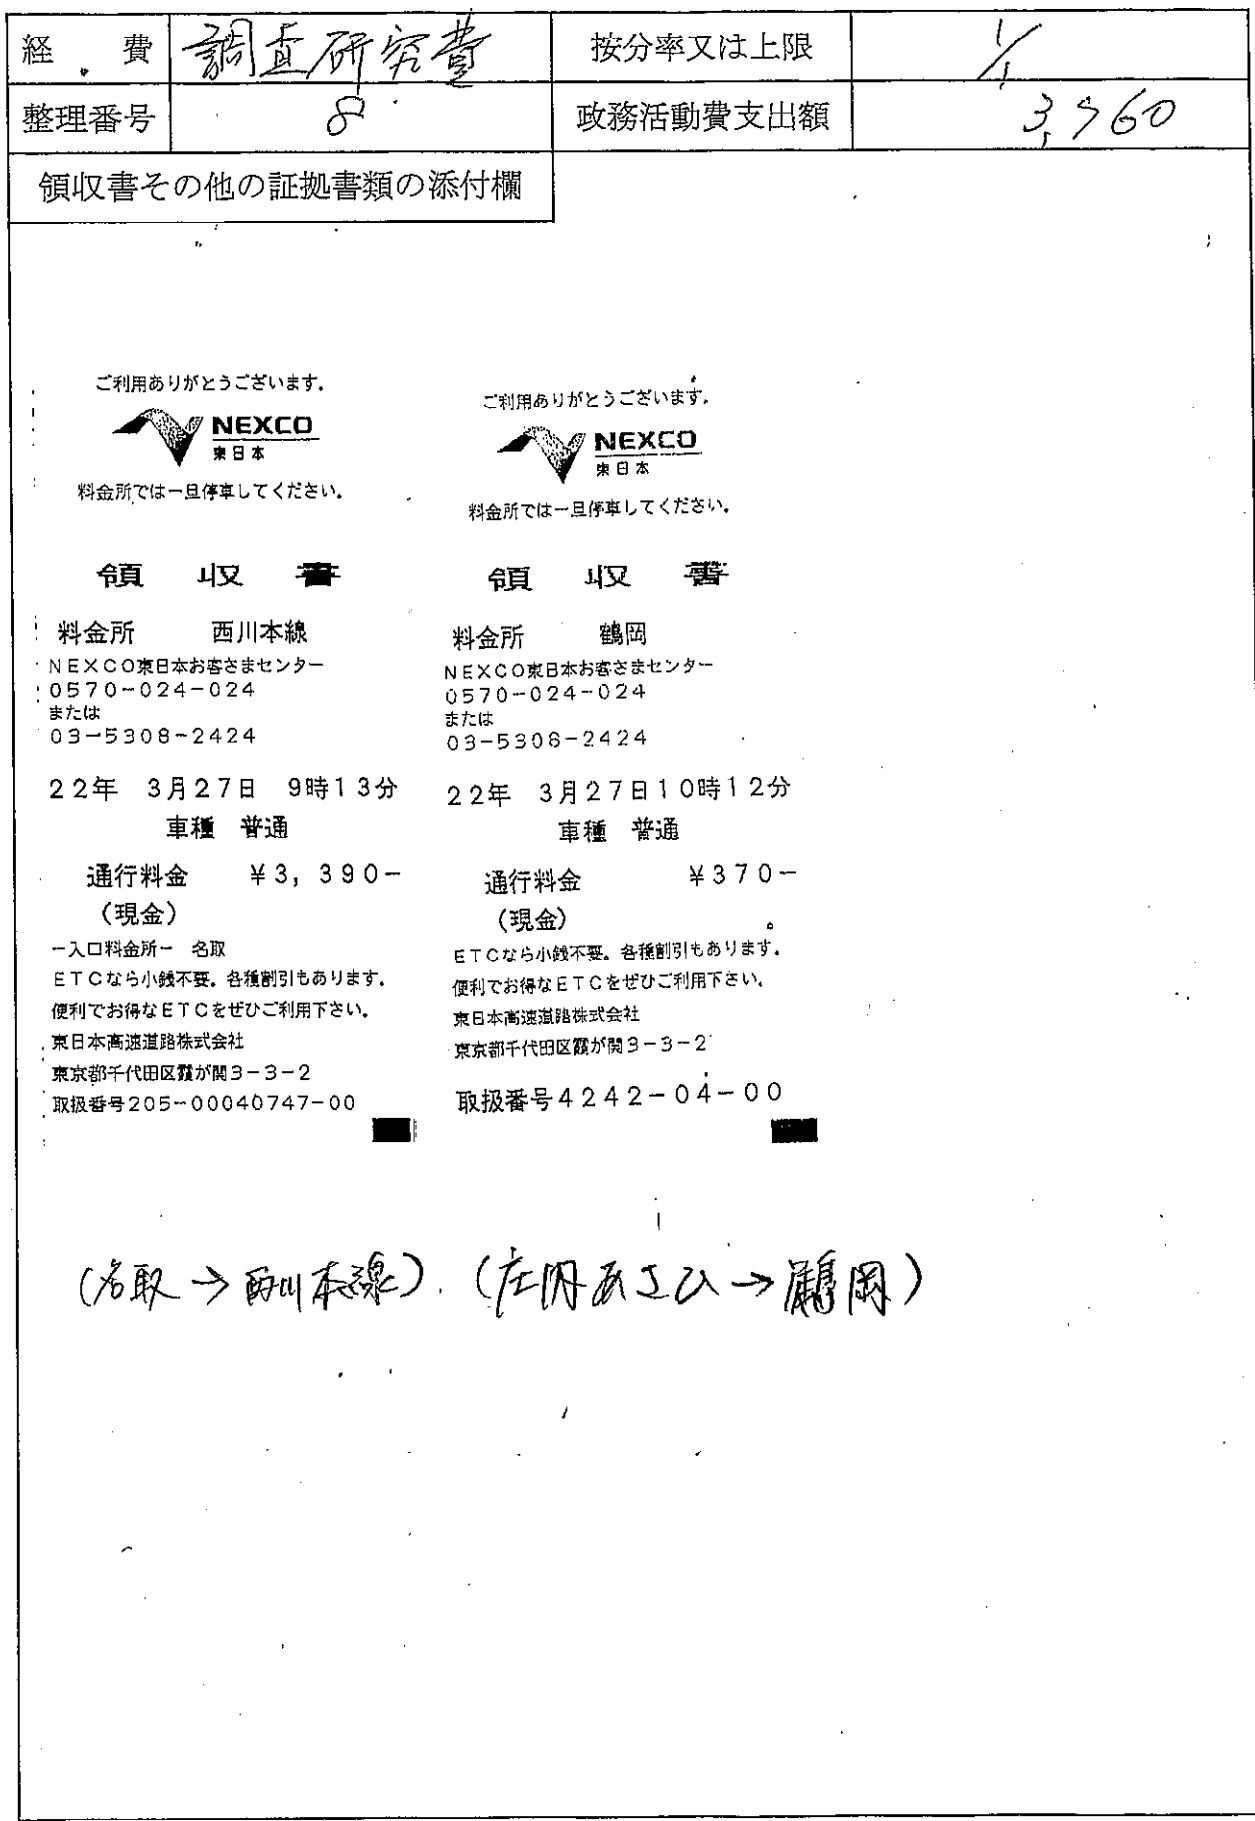 経 費 調査研究費 按分率又は上限 1/1
整理番号 8 政務活動費支出額 3,760
領収書その他の証拠書類の添付欄
ご利用ありがとうございます。
NEXCO
東日本
料金所では一旦停車してください。
領 収 書
料金所 西川本線
NEXCO東日本お客さまセンター
0570-024-024
または
03-5308-2424
22年 3月27日 9時13分
車種 普通
通行料金 ¥3,390-
(現金)
ー入口料金所ー 名取
ETCなら小銭不要。各種割引もあります。
便利でお得なETCをぜひご利用下さい。
東日本高速道路株式会社
東京都千代田区霞が関3-3-2
取扱番号205-00040747-00
ご利用ありがとうございます。
NEXCO
東日本
料金所では一旦停車してください。
領 収 書
料金所 鶴岡
NEXCO東日本お客さまセンター
0570-024-024
または
03-5308-2424
22年 3月27日10時12分
車種 普通
通行料金 ¥370-
(現金)
ETCなら小銭不要。各種割引もあります。
便利でお得なETCをぜひご利用下さい。
東日本高速道路株式会社
東京都千代田区霞が関3-3-2
取扱番号4242-04-00
(名取→西川本線).(庄内あさひ→鶴岡)